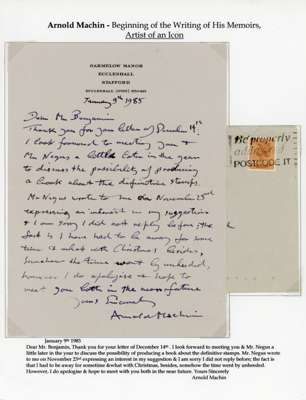 Arnold Machin - Beginning of the Writing of His Memoirs,
Artist of an Icon
GARMELOW MANOR
ECCLESHALL
STAFFORD
January 9th 1985
Dear Mr Benjamin
Thank you for your letter of December 14th.
I look forward to meeting you &
Mr Negus a little later in the year
to discuss the possibility of producing
a book about the definitive stamps.
Mr Negus wrote to me on November 23rd
expressing an interest in my suggestion
& I am sorry I did not reply before; the
fact is I have had to be away for some
time & what with Christmas besides,
somehow the time went by unheeded,
however I do apologise & hope to
meet you both in the near future
Yours Sincerely
Arnold Machin
Be properly
addressed
POSTCODE IT
January 9th 1985
Dear Mr. Benjamin, Thank you for your letter of December 14th . I look forward to meeting you & Mr. Negus a
little later in the year to discuss the possibility of producing a book about the definitive stamps. Mr. Negus wrote
to me on November 23rd expressing an interest in my suggestion & I am sorry I did not reply before; the fact is
that I had to be away for sometime &what with Christmas, besides, somehow the time went by unheeded.
However, I do apologise & hope to meet with you both in the near future. Yours Sincerely
Arnold Machin